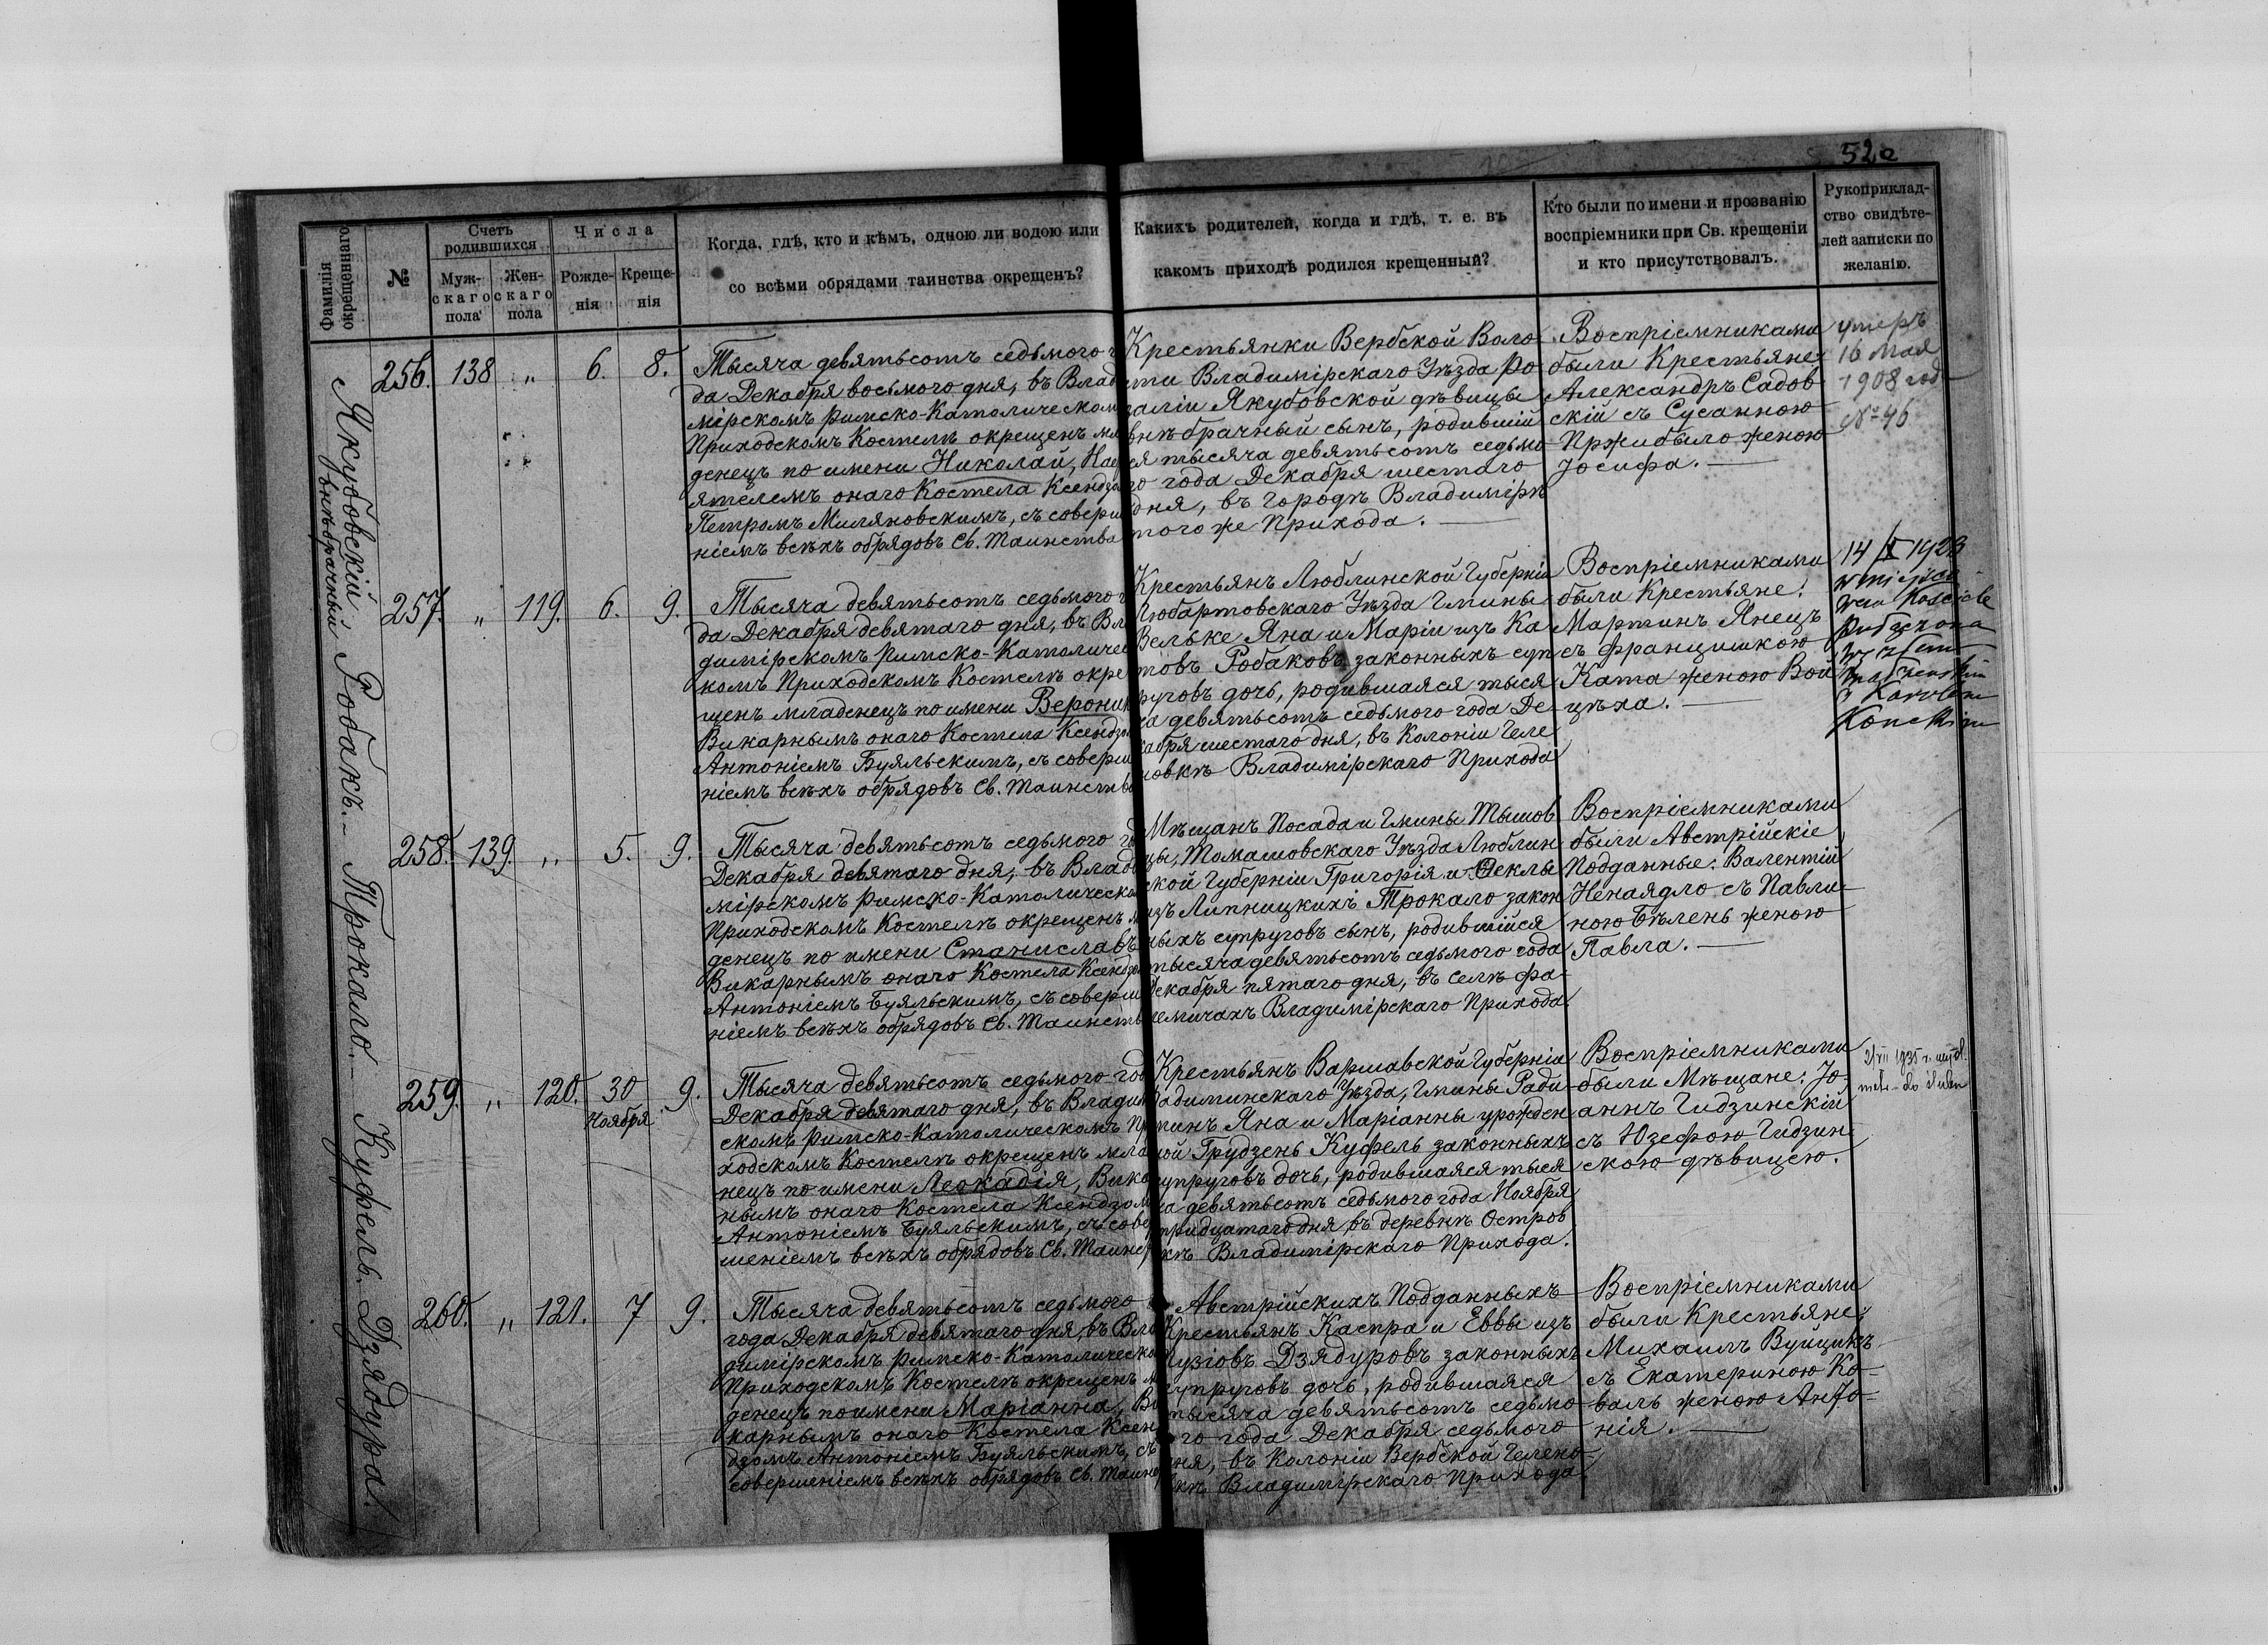 52
Фамилія окрещеннаго
№
Счетъ родившихся
Муж-скаго пола
Жен-скаго пола
Числа
Рожде-нія
Креще-нія
Когда, гдѣ, кто и кѣмъ, одною ли водою или
со всѣми обрядами таинства окрещенъ?
Какихъ родителей, когда и гдѣ, т. е. въ
какомъ приходѣ родился крещенный?
Кто были по имени и прозванію
воспріемники при Св. крещеніи
и кто присутствовалъ.
Рукоприклад-
ство свидѣте-
лей записки по
желанію.
Якубовскій внѣбрачный
256. 138 " 6. 8.
Тысяча девятьсотъ седьмого г
да Декабря восьмого дня, въ Влад
мірскомъ Римско-Католическом
Приходскомъ Костелѣ окрещенъ мл
денецъ по имени Николай, Нас
ятелемъ онаго Костела Ксендзо
Петромъ Миляновскимъ, съ соверш
ніемъ всѣхъ обрядовъ Св. Таинства
Крестьянки Вербской Воло
сти Владимірскаго Уѣзда Ро
заліи Якубовской дѣвицы
внѣбрачный сынъ, родившій
ся тысяча девятьсотъ седьмо
го года Декабря шестаго
дня, въ городѣ Владимірѣ
того же Прихода.
Воспріемниками
были Крестьяне:
Александръ Садов
скій съ Сусанною
Пржибыло женою
Іосифа.
умеръ
16 Мая
1908 год
№ 46
Робакъ.
257. " 119. 6. 9.
Тысяча девятьсотъ седьмого г
да Декабря девятаго дня, въ Вла
димірскомъ Римско-Католичес
комъ Приходскомъ Костелѣ окре
щенъ младенецъ по имени Верони
Викарнымъ онаго Костела Ксендзом
Антоніемъ Буяльскимъ, съ соверш
ніемъ всѣхъ обрядовъ Св. Таинств
Крестьянъ Люблинской Губерніи
Любартовскаго Уѣзда Гмины
Вельке Яна и Маріи изъ Ка
товъ Робаковъ законныхъ суп
руговъ дочь, родившаяся тыся
ча девятьсотъ седьмого года Де
кабря шестаго дня, въ Колоніи Геле
новкѣ Владимірскаго Прихода
Воспріемниками
были Крестьяне:
Мартинъ Янецъ
съ Францишкою
Ката женою Вой
цѣха.
14/I 1923
Karolem
Трокало.
258. 139. " 5. 9.
Тысяча девятьсотъ седьмого го
Декабря девятаго дня, въ Влади
мірскомъ Римско-Католическо
Приходскомъ Костелѣ окрещенъ м
денецъ по имени Станиславъ
Викарнымъ онаго Костела Ксендзо
Антоніемъ Буяльскимъ, съ соверш
ніемъ всѣхъ обрядовъ Св. Таинств
Мѣщанъ Посада и Гмины Тышов
цы, Томашовскаго Уѣзда Люблин
ской Губерніи Григорія и Ѳеклы
изъ Липницкихъ Трокало закон
ныхъ супруговъ сынъ, родившійся
тысяча девятьсотъ седьмого года
Декабря пятаго дня, въ селѣ Фа
лемичахъ Владимірскаго Прихода
Воспріемниками
были Австрійскіе
Подданные: Валентій
Ненаядло съ Павли
ною Бѣлень женою
Павла.
Куфель.
259. " 120. 30 Ноября 9.
Тысяча девятьсотъ седьмого год
Декабря девятаго дня, въ Владим
скомъ Римско-Католическомъ Пр
ходскомъ Костелѣ окрещенъ млад
нецъ по имени Леокадія, Вика
нымъ онаго Костела Ксендзом
Антоніемъ Буяльскимъ, съ совер
шеніемъ всѣхъ обрядовъ Св. Таинс
Крестьянъ Варшавской Губерніи
Радиминскаго Уѣзда, Гмины Ради
минъ Яна и Маріанны урожден
ной Грудзень Куфель законныхъ
супруговъ дочь, родившаяся тыся
ча девятьсотъ седьмого года Ноября
тридцатаго дня въ деревнѣ Остров
кѣ Владимірскаго Прихода.
Воспріемниками
были Мѣщане: Іо
аннъ Гидзинскій
съ Юзефою Гидзин
скою дѣвицею.
1935 r.
do ślubu
Дзядура.
260. " 121. 7 9.
Тысяча девятьсотъ седьмого
года Декабря девятаго дня, въ Вла
димірскомъ Римско-Католическо
Приходскомъ Костелѣ окрещенъ м
денецъ по имени Маріанна, Ви
карнымъ онаго Костела Ксен
дзомъ Антоніемъ Буяльскимъ, съ
совершеніемъ всѣхъ обрядовъ Св. Таинс
Австрійскихъ Подданныхъ
Крестьянъ Каспра и Еввы изъ
Кузіовъ Дзядуровъ законныхъ
супруговъ дочь, родившаяся
тысяча девятьсотъ седьмо
го года Декабря седьмого
дня, въ Колоніи Вербской Гелено
вкѣ Владимірскаго Прихода
Воспріемниками
были Крестьяне:
Михаилъ Вуйцикъ
съ Екатериною Ко
валь женою Анто
нія.